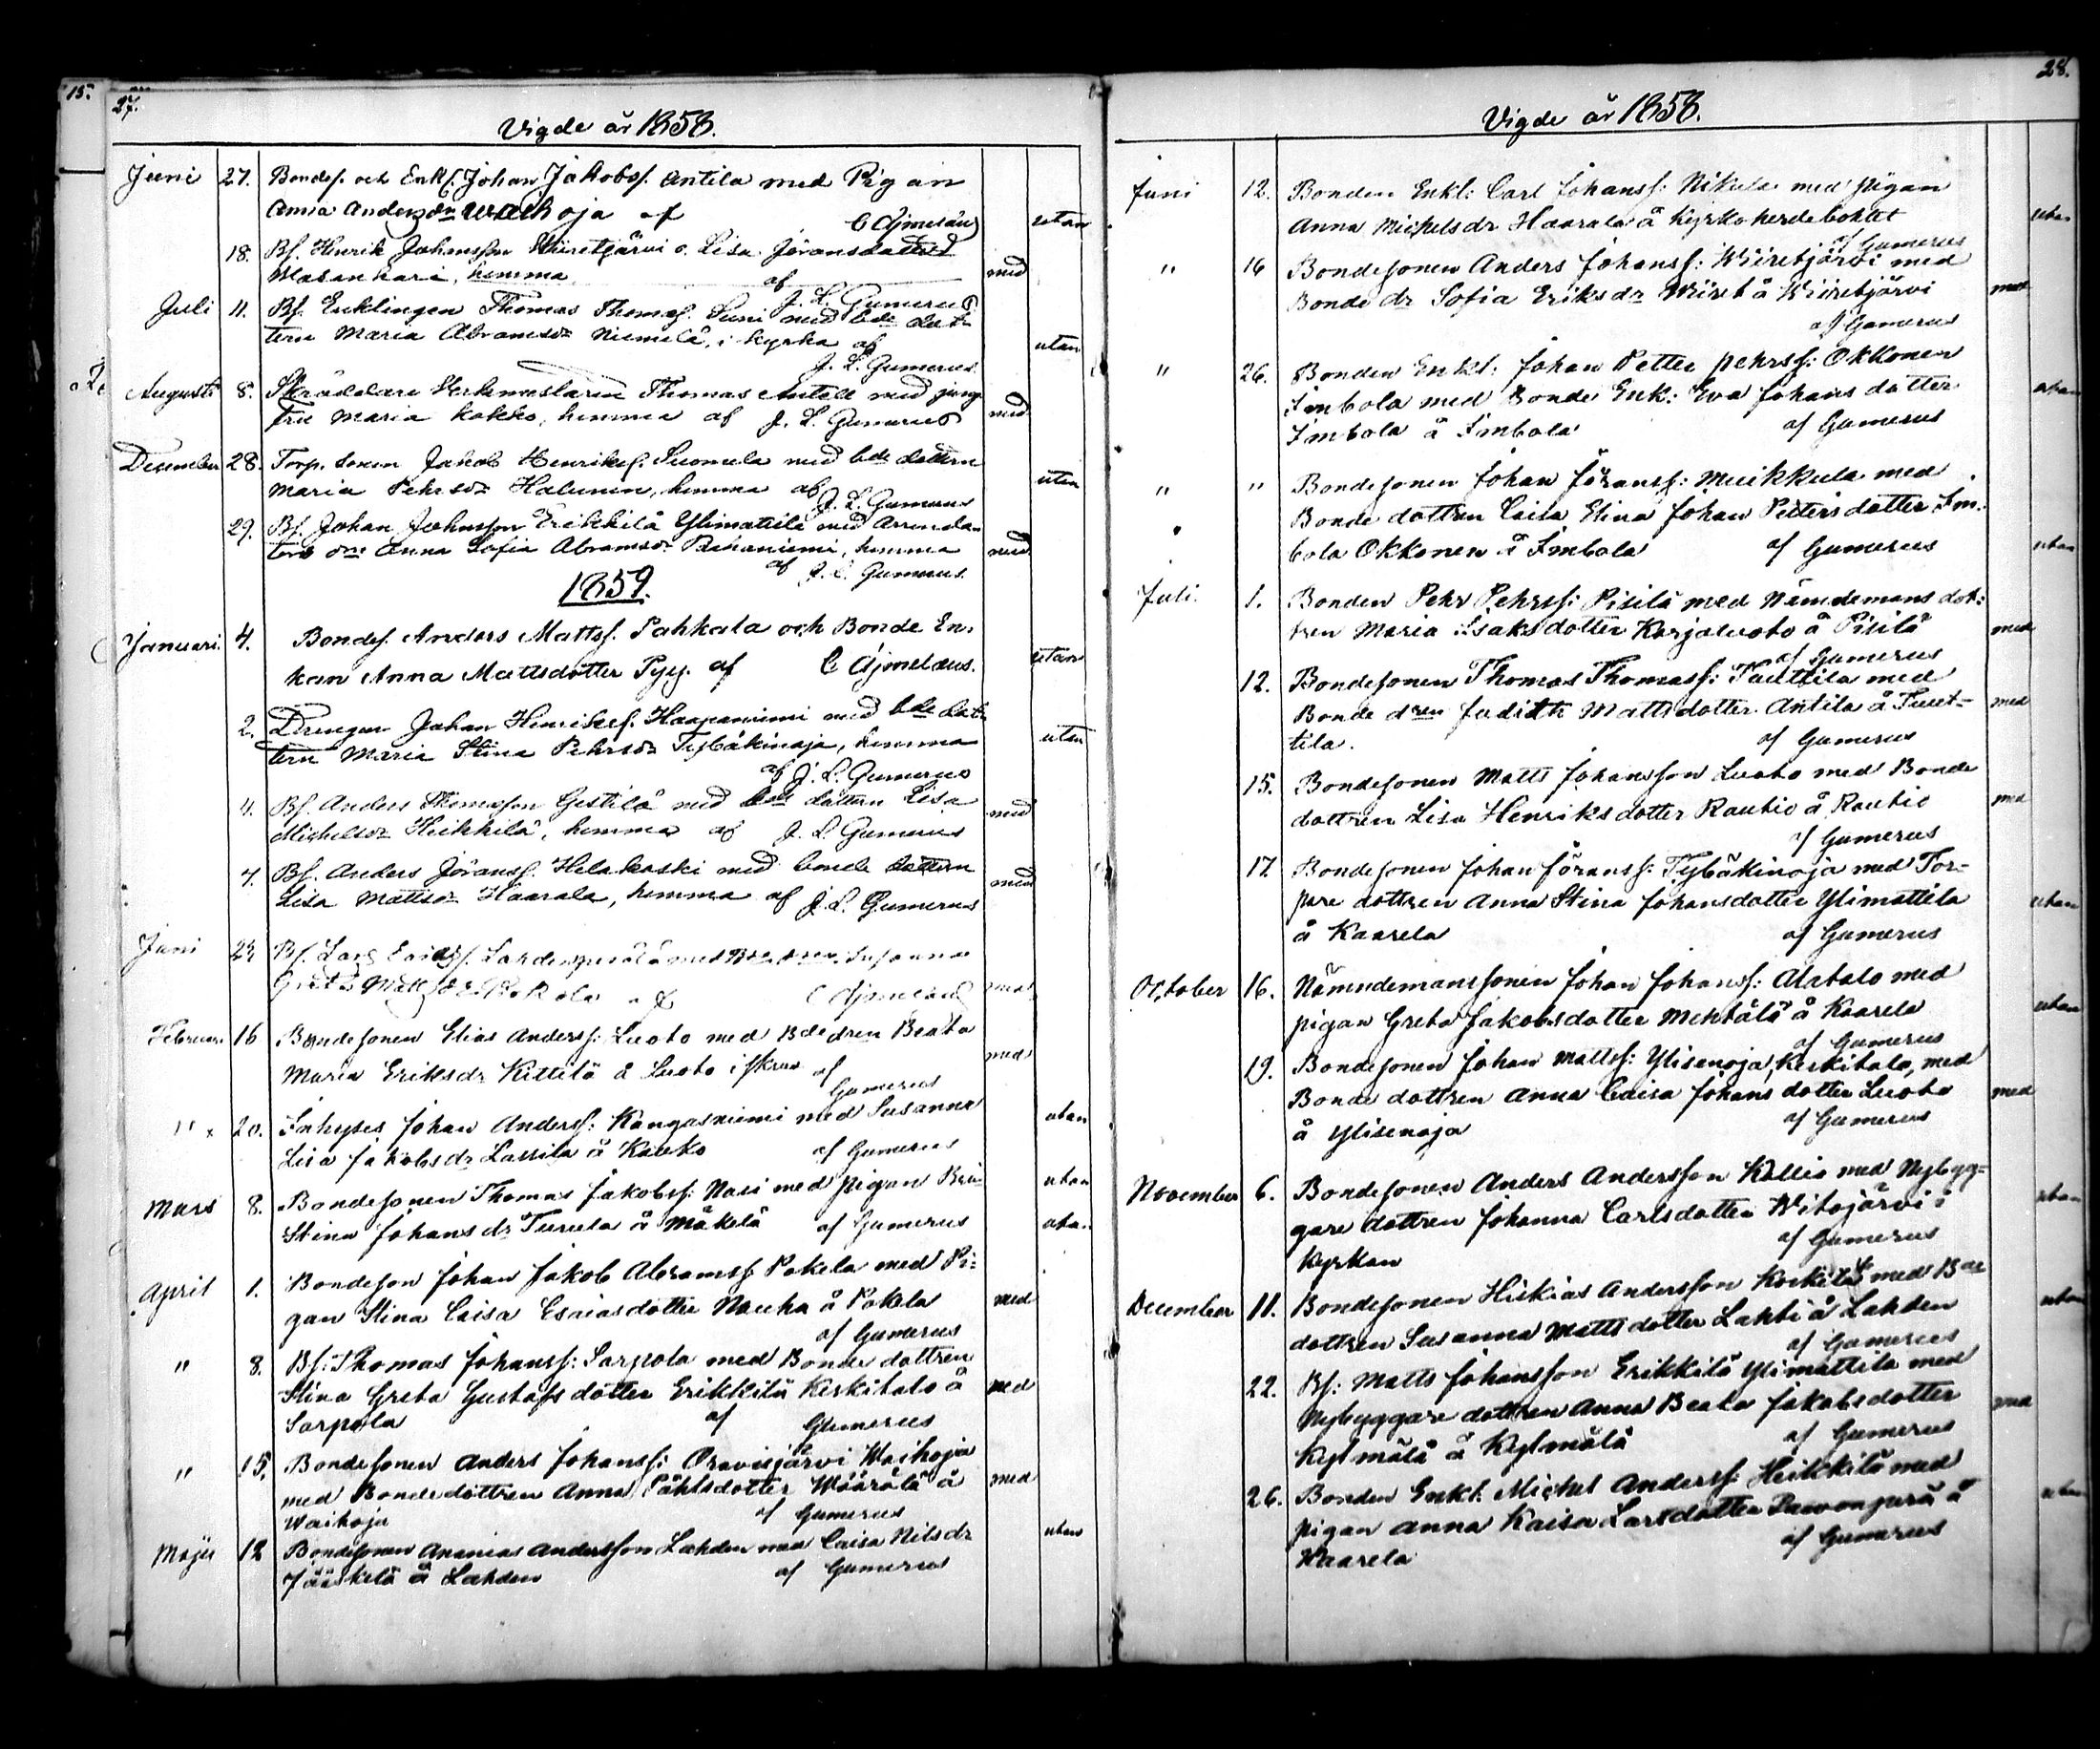 15.
27.
Vigde år 1858.
Juni 27. Bondes. och Enkl. Johan Jakobs. Antila med Pigan
Anna Andersdr Waihoja af C Ajmelæus utan
18. Bs. Henrik Johansson Wiiretjärvi o. Lisa Jöransdotter
Wasankari, hemma af J. L. Gumerus med
Juli 11. Bs. Encklingen Thomas Thomæs. Suni med bde dot-
tern Maria Abramsdr Niemelä, i kyrka af utan
J. L. Gumerus.
Augusti 8. Skräddare Thomas Antell med jung-
fru Maria Kokko, hemma af J. L. Gumerus med
December 28. Torp. sonen Jakob Henrikss. Suomela med bde dottern
Maria Pehrsdr Halunen, hemma af J. L. Gumerus utan
29. Bs. Johan Johansson Erikkilä Ylimattila med Arrenda-
tors dr Anna Sofia Abramsdr Pahaniemi, hemma med
af J. L. Gumerus
1859.
Januari 4. Bondes. Anders Mattss. Pahkala och Bonde En-
kan Anna Mattsdotter Pyy. af C Ajmelæus. utan
2. Drengen Johan Henrikss. Haapaniemi med bde dot-
tern Maria Stina Pehrsdr Tybäkinoja, hemma utan
af J. L. Gumerus
4. Bs. Anders Thomasson Gestilä med bde dottern Lisa
Michelsdr Heikkilä, hemma af J. L. Gumerus med
7. Bs. Anders Jöranss. Helakoski med bonde dottern
Lisa Mattsdr Haarala, hemma af J. L. Gumerus med
Juni 23. Bs. Lars med Susanna
Greta Mattsdr af C Ajmelæus med
Februari 16 Bondesonen Elias Anderss: Luoto med Bdedren Beata
Maria Eriksdr Kittilä å Luoto af med
Gumerus
" 20. Inhyses Johan Anderss: Kangasniemi med Susanna utan
Lisa Jakobsdr Lassila å Kaako af Gumerus
Mars 8. Bondesonen Thomas Jakobss: Nasi med pigan utan
Stina Johansdr Turula å Mäkelä af Gumerus utan
April 1. Bondeson Johan Jakob Abramss Pokela med Pi-
gan Stina Caisa Esaiasdotter Nauha å Pokela med
af Gumerus
" 8. Bs: Thomas Johanss: Sarpola med Bonde dottren
Stina Greta Gustafsdotter Erikkilä Keskitalo å med
Sarpola af Gumerus
" 15. Bondesonen Anders Johanss: Oravisjärvi Waihoja
med Bondedottren Anna Påhlsdotter Wäärälä å med
Waihoja af Gumerus
Maji 12 Bondesonen Ananias Andersson Lahden med Caisa Nilsdr utan
Jääskelä å Lahden af Gumerus
28.
Vigde år 1858.
Juni 12. Bonden Enkl: Carl Johanss: Nikula med pigan
Anna Mickelsdr Haarala å kyrkoherdebohlet utan
af Gumerus
" 16 Bondesonen Anders Johanss: Wiiretjärvi med
Bonde dr Sofia Eriksdr Wiiret å Wiiretjärvi med
af Gumerus
" 26. Bonden Enkl: Johan Petter Pehrss: Okkonen
Imbola med Bonde Enk: Eva Johans dotter utan
Imbola å Imbola af Gumerus
" " Bondesonen Johan Jöranss: Muikkula med
Bonde dottren Caisa Elina Johan Pettersdotter Im-
bola Okkonen å Imbola af Gumerus utan
Juli. 1. Bonden Pehr Pehrss: Pisilä med Nämndemans dot-
tren Maria Isaksdotter Karjaluoto å Pisilä med
af Gumerus
12. Bondesonen Thomas Thomass: Tuuttila med
Bonde dren Judith Mattsdotter Antila å Tuut- med
tila. af Gumerus
15. Bondesonen Matts Johansson Luoto med Bonde
dottren Lisa Henriksdotter Rautio å Rautio med
af Gumerus
17 Bondesonen Johan Jöranss: Tybäkinoja med Tor-
pare dottren Anna Stina Johansdotter Ylimattila utan
å Kaarela af Gumerus
October 16. Nämndemanssonen Johan Johanss: Alatalo med
pigan Greta Jakobsdotter Mehtälä å Kaarela utan
af Gumerus
19. Bondesonen Johan Mattss: Ylisenoja, Keskitalo, med
Bonde dottren Anna Caisa Johans dotter Luoto med
å Ylisenoja af Gumerus
November 6. Bondesonen Anders Andersson Kallio med Nybyg-
gare dottren Johanna Carlsdotter Witajärvi i utan
Kyrkan af Gumerus
December 11. Bondesonen Hiskias Andersson Koskela med Bde
dottren Susanna Mattsdotter Lahti å Lahden utan
af Gumerus
22. Bs: Matts Johansson Erikkilä Ylimattila med
Nybyggare dottren Anna Beata Jakobsdotter med
Kylmälä å Kylmälä af Gumerus
26. Bonden Enkl. Michel Anderss: Heikkilä med
pigan Anna Kaisa Larsdotter Pavonperä å utan
Kaarela af Gumerus